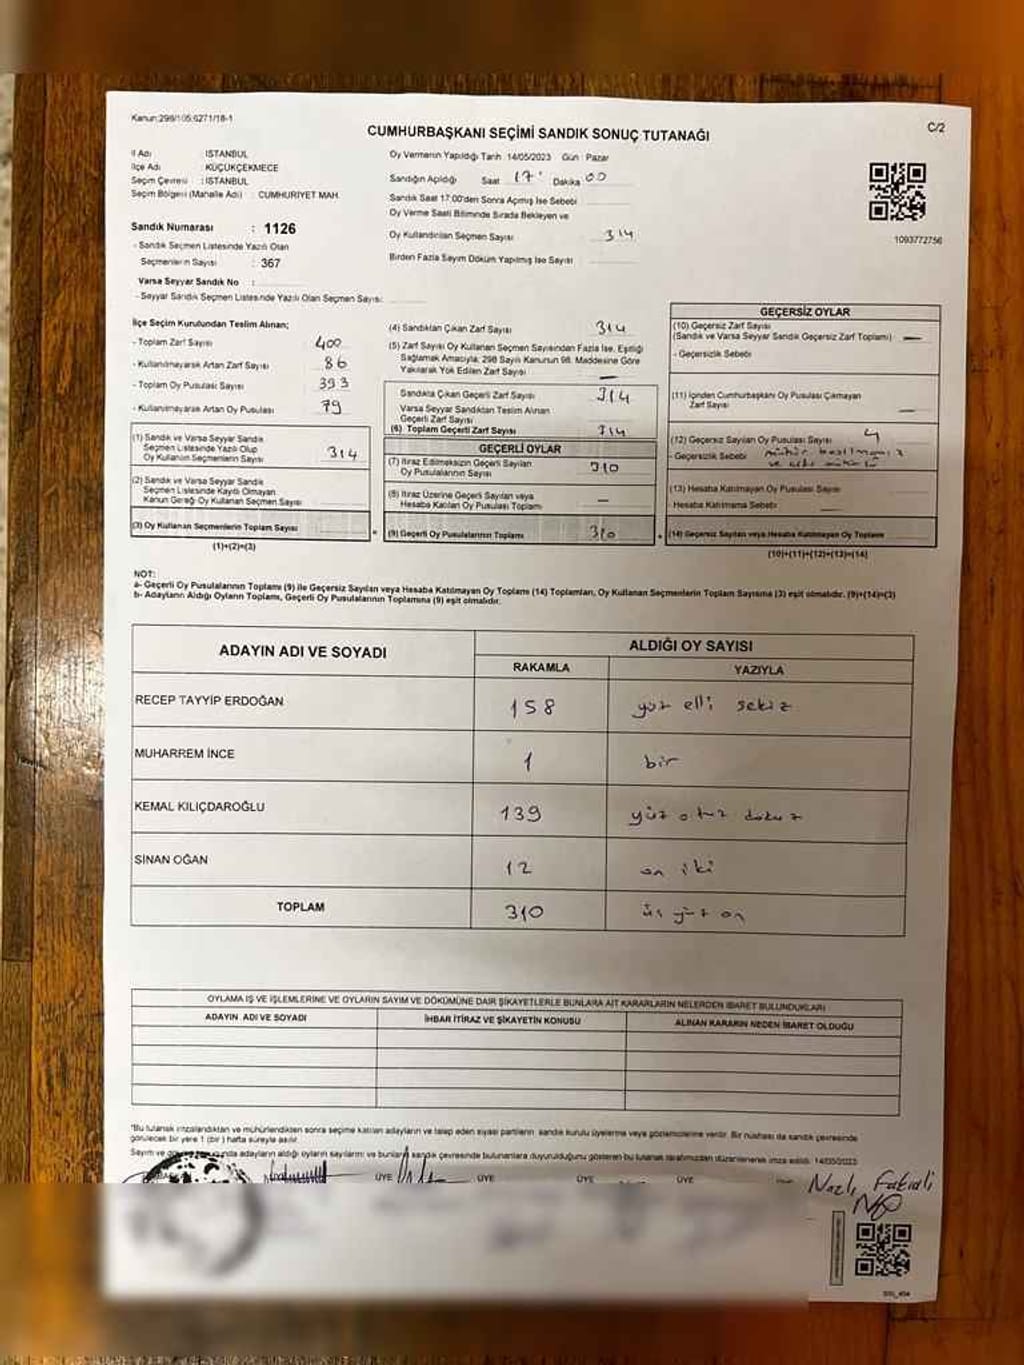 Kanun:298/105;6271/18-1
CUMHURBAŞKANI SEÇİMİ SANDIK SONUÇ TUTANAĞI
C/2
İl Adı : İSTANBUL
İlçe Adı : KÜÇÜKÇEKMECE
Seçim Çevresi : İSTANBUL
Seçim Bölgesi (Mahalle Adı) : CUMHURİYET MAH.
Sandık Numarası : 1126
- Sandık Seçmen Listesinde Yazılı Olan
Seçmenlerin Sayısı : 367
Varsa Seyyar Sandık No :
- Seyyar Sandık Seçmen Listesinde Yazılı Olan Seçmen Sayısı:
Oy Vermenin Yapıldığı Tarih: 14/05/2023 Gün : Pazar
Sandığın Açıldığı Saat 17 Dakika 00
Sandık Saat 17:00'den Sonra Açılmış İse Sebebi
Oy Verme Saati Bitiminde Sırada Bekleyen ve
Oy Kullandırılan Seçmen Sayısı 314
Birden Fazla Sayım Döküm Yapılmış İse Sayısı
1093772756
İlçe Seçim Kurulundan Teslim Alınan;
- Toplam Zarf Sayısı 400
- Kullanılmayarak Artan Zarf Sayısı 86
- Toplam Oy Pusulası Sayısı 393
- Kullanılmayarak Artan Oy Pusulası 79
(1) Sandık ve Varsa Seyyar Sandık
Seçmen Listesinde Yazılı Olup
Oy Kullanan Seçmenlerin Sayısı 314
(2) Sandık ve Varsa Seyyar Sandık
Seçmen Listesinde Kayıtlı Olmayan
Kanun Gereği Oy Kullanan Seçmen Sayısı
(3) Oy Kullanan Seçmenlerin Toplam Sayısı
(1)+(2)=(3)
(4) Sandıktan Çıkan Zarf Sayısı 314
(5) Zarf Sayısı Oy Kullanan Seçmen Sayısından Fazla İse, Eşitliği
Sağlamak Amacıyla; 298 Sayılı Kanunun 98. Maddesine Göre
Yakılarak Yok Edilen Zarf Sayısı —
Sandıkta Çıkan Geçerli Zarf Sayısı 314
Varsa Seyyar Sandıktan Teslim Alınan
Geçerli Zarf Sayısı
(6) Toplam Geçerli Zarf Sayısı 314
GEÇERLİ OYLAR
(7) İtiraz Edilmeksizin Geçerli Sayılan
Oy Pusulalarının Sayısı 310
(8) İtiraz Üzerine Geçerli Sayılan veya
Hesaba Katılan Oy Pusulası Toplamı —
(9) Geçerli Oy Pusulalarının Toplamı 310
GEÇERSİZ OYLAR
(10) Geçersiz Zarf Sayısı
(Sandık ve Varsa Seyyar Sandık Geçersiz Zarf Toplamı) —
- Geçersizlik Sebebi
(11) İçinden Cumhurbaşkanı Oy Pusulası Çıkmayan
Zarf Sayısı —
(12) Geçersiz Sayılan Oy Pusulası Sayısı 4
- Geçersizlik Sebebi mühür
ve
(13) Hesaba Katılmayan Oy Pusulası Sayısı
- Hesaba Katılmama Sebebi —
(14) Geçersiz Sayılan veya Hesaba Katılmayan Oy Toplamı
(10)+(11)+(12)+(13)=(14)
NOT:
a- Geçerli Oy Pusulalarının Toplamı (9) ile Geçersiz Sayılan veya Hesaba Katılmayan Oy Toplamı (14) Toplamları, Oy Kullanan Seçmenlerin Toplam Sayısına (3) eşit olmalıdır. (9)+(14)=(3)
b- Adayların Aldığı Oyların Toplamı, Geçerli Oy Pusulalarının Toplamına (9) eşit olmalıdır.
ADAYIN ADI VE SOYADI ALDIĞI OY SAYISI
RAKAMLA YAZIYLA
RECEP TAYYİP ERDOĞAN 158 yüz elli sekiz
MUHARREM İNCE 1 bir
KEMAL KILIÇDAROĞLU 139 yüz otuz dokuz
SİNAN OĞAN 12 on iki
TOPLAM 310 üç yüz on
OYLAMA İŞ VE İŞLEMLERİNE VE OYLARIN SAYIM VE DÖKÜMÜNE DAİR ŞİKAYETLERLE BUNLARA AİT KARARLARIN NELERDEN İBARET BULUNDUKLARI
ADAYIN ADI VE SOYADI İHBAR İTİRAZ VE ŞİKAYETİN KONUSU ALINAN KARARIN NEDEN İBARET OLDUĞU
"Bu tutanak imzalandıktan ve mühürlendikten sonra seçime katılan adayların ve talep eden siyasi partilerin sandık kurulu üyelerine veya gözlemcilerine verilir. Bir nüshası da sandık çevresinde
görülecek bir yere 1 (bir) hafta süreyle asılır.
Sayım ve adayların aldığı oyların sayılarını ve bunların sandık çevresinde bulunanlara duyurulduğunu gösteren bu tutanak tarafımızdan düzenlenerek imza edildi. 14/05/2023
ÜYE ÜYE ÜYE ÜYE